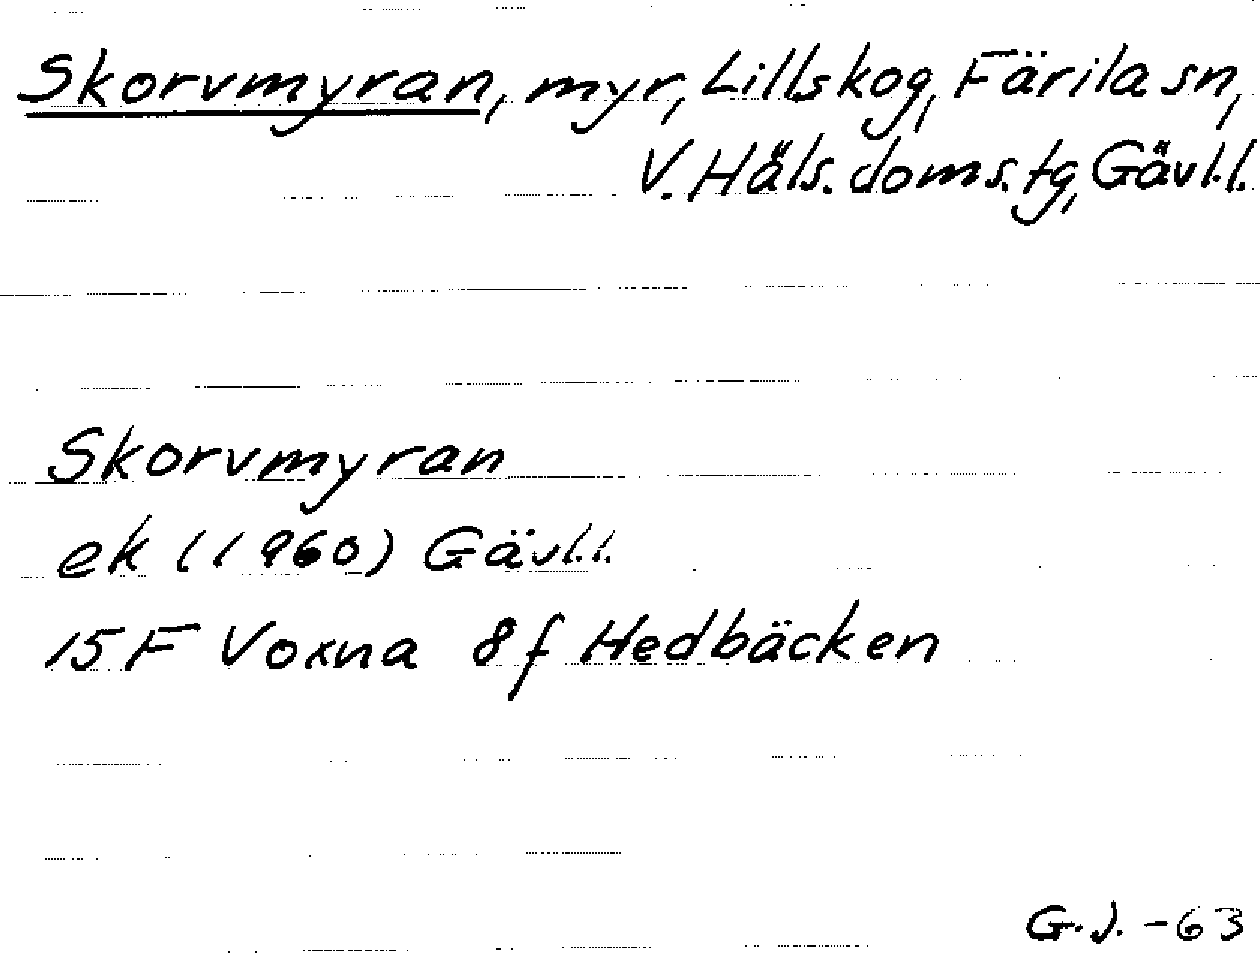 Skorvmyran, myr, Lillskog, Färila sn,
V. Häls. doms.tg, Gävl.l.
Skorvmyran
ek (1960) Gävl.l.
15 F Voxna 8 f Hedbäcken
G.J. -63